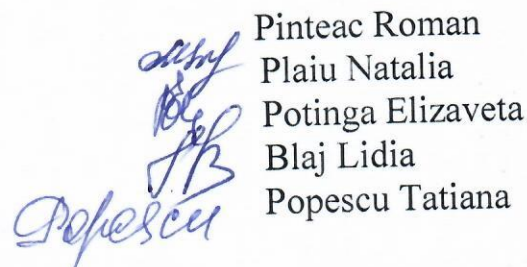 Pinteac Roman
Plaiu Natalia
Potinga Elizaveta
Blaj Lidia
Popescu Tatiana
Popescu